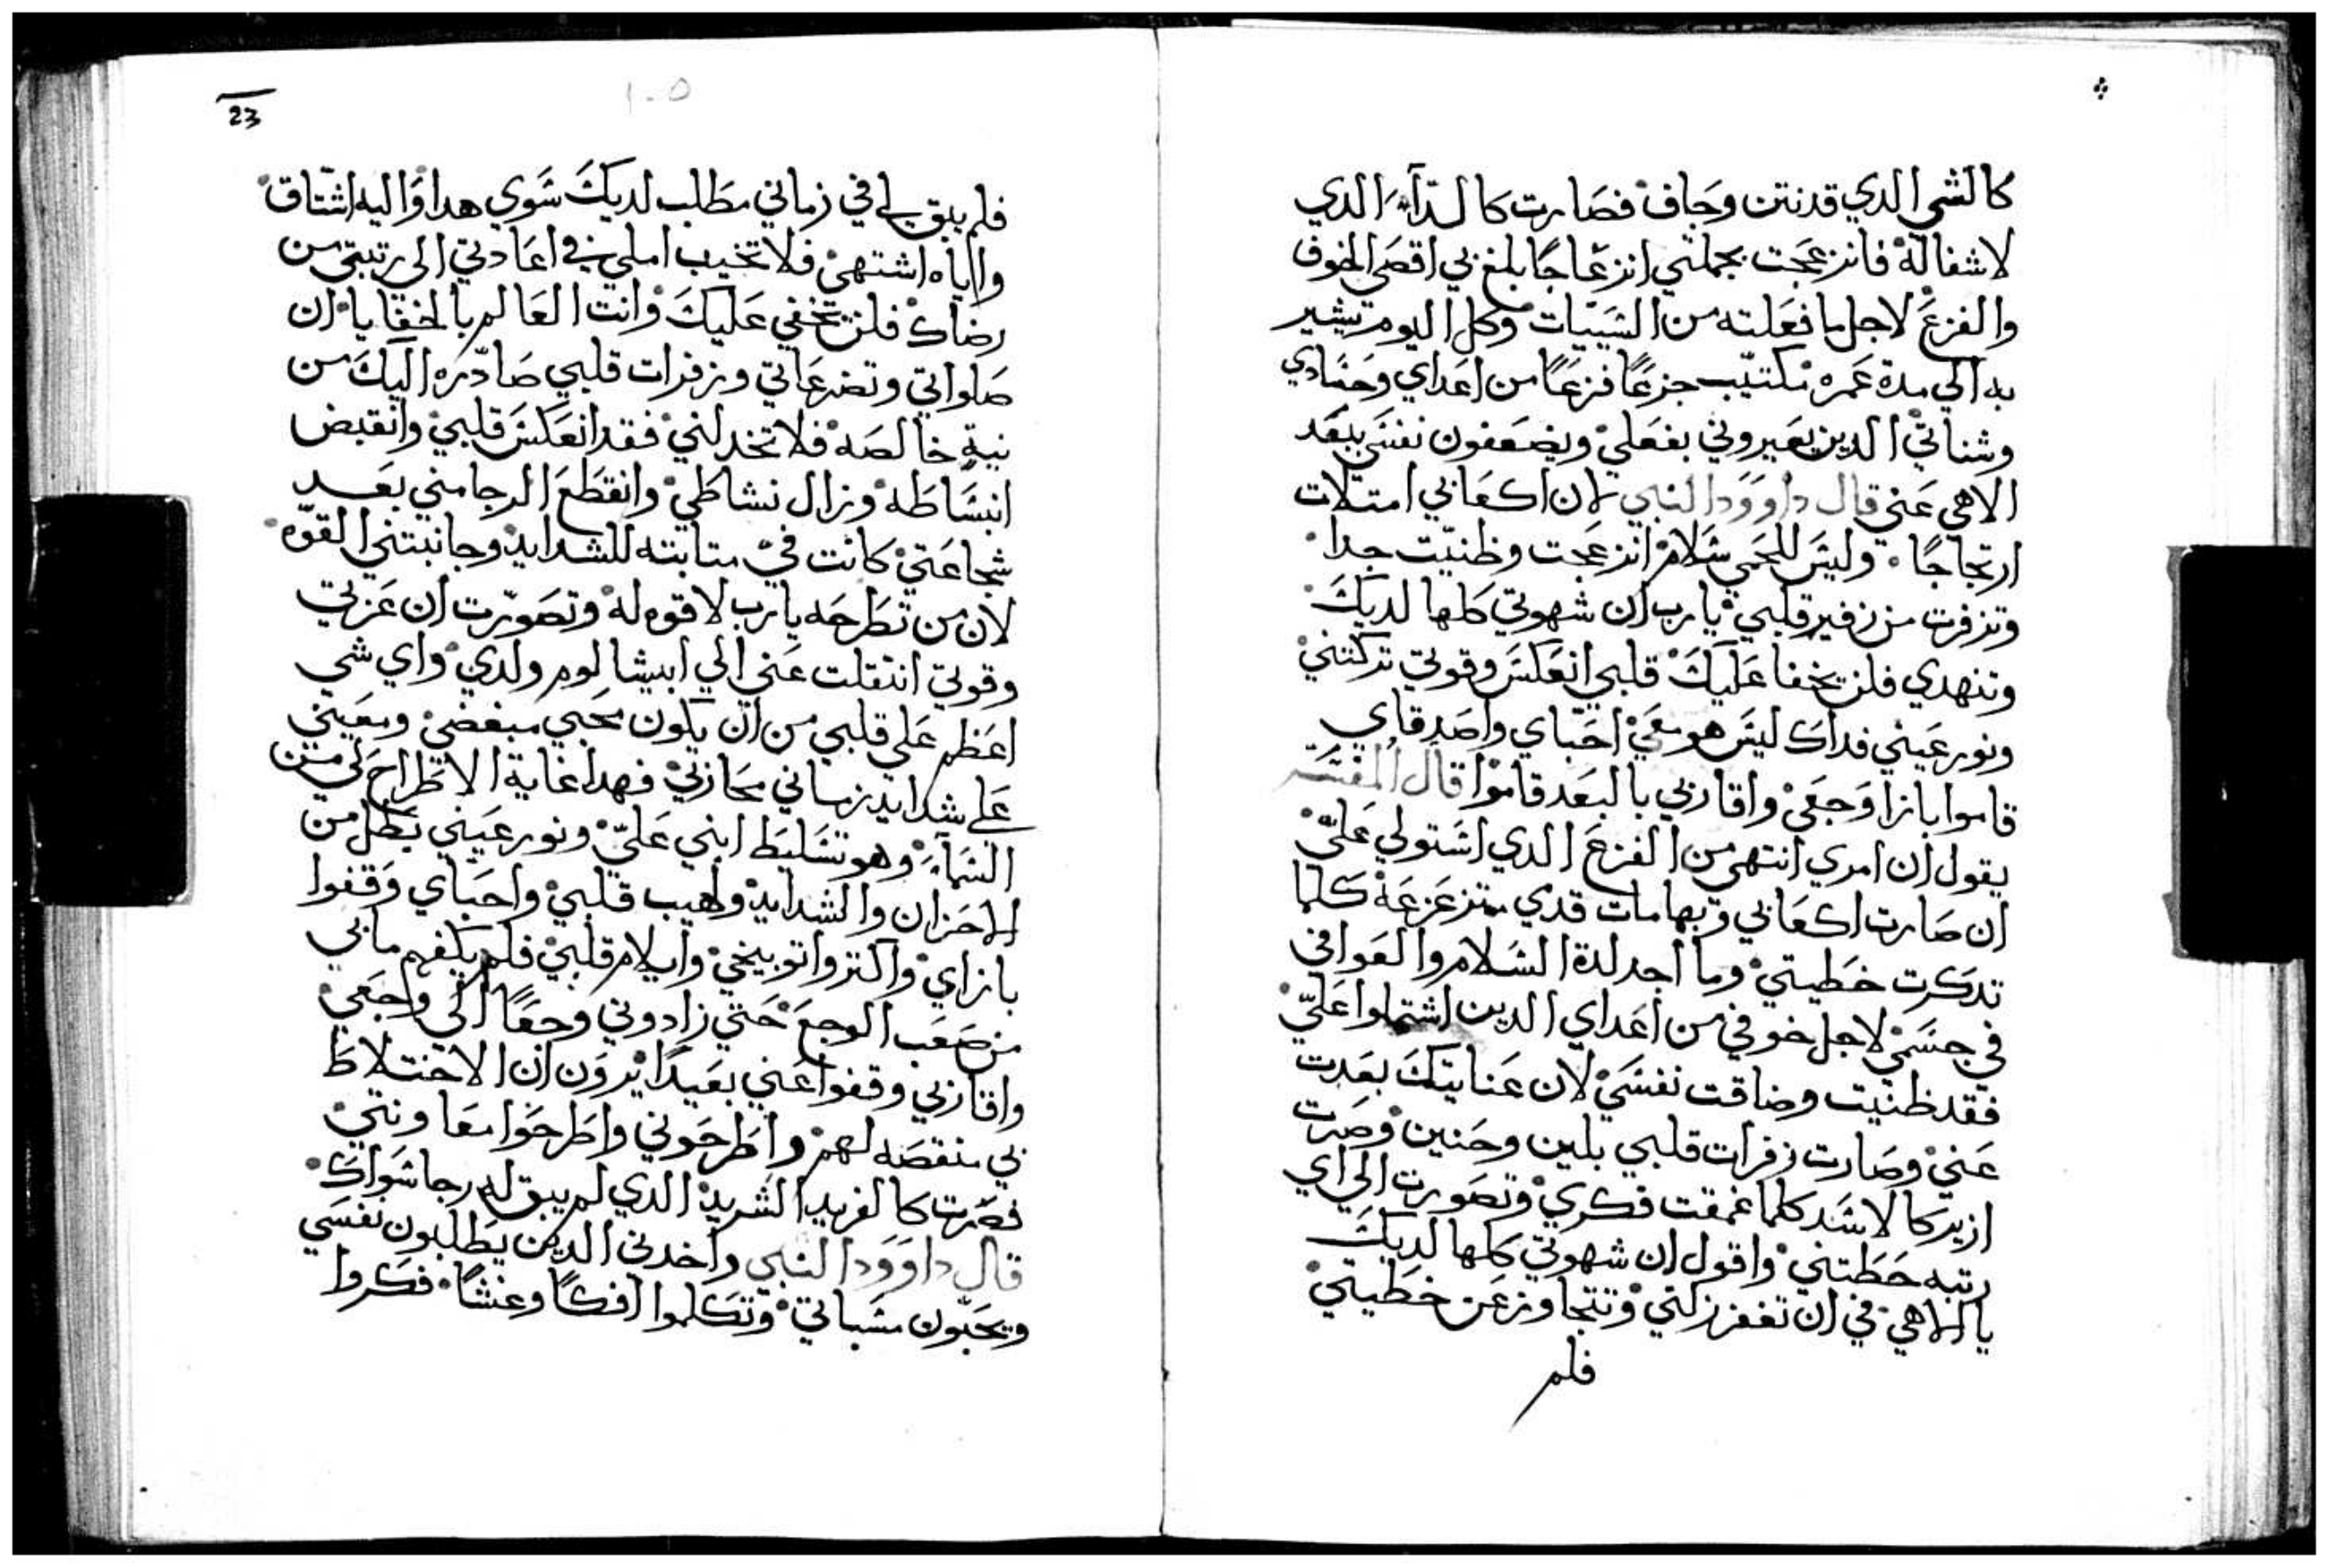 كالشي الدي قد نتن وجاف فصارت كالدآء الدي
لا شفا له فانزعجت بجملتي انزعاجًا بلغ بي اقصي الخوف
والفزع لاجل ما فعلته من السيّات وكل اليوم تشير
به الي مدة عمره مكتيّب جزعًا فزعًا من اعداي وحسادي
وشناتي الدين يعيروني بفعلي ويضعفون نفسي ببعد
الاهي عني قال داوود النبي لان اكعابي امتلات
ارتجاجًا وليس للحمي سلام انزعجت وظنيّت جدا
وتزفرت من زفير قلبي يا رب ان شهوتي كلها لديك
وتنهدي فلن يخفا عليك قلبي انعكس وقوتي تركتني
ونور عيني فداك ليس هو معي احبّاي واصدقاي
قاموا بازا وجعي واقاربي بالبعد قاموا قال المفسّر
يقول ان امري انتهي من الفزع الدي استولي عليّ
ان صارت اكعابي وبهامات قدمي متزعزعة كلما
تدكرت خطيتي وما اجد لدة السلام والعوافي
في جسمي لاجل خوفي من اعداي الدين اشتملوا عليّ
فقد ظنيّت وضاقت نفسي لان عنايتك بعدت
عني وصارت زفرات قلبي بلين وحنين وصرت
ازير كالاسد كلما غمقت فكري وتصورت الي اي
رتبه حطتني واقول ان شهوتي كلها لديك
يا الاهي في ان تغفر زلتي وتتجاوز عن خطيتي
فلم
١٠٥
23
فلم يبق لي في زماني مطلب لديك سوي هدا واليه اشتاق
واياه اشتهي فلا تخيب املي في اعادتي الي رتبتي من
رضاك فلن تخفي عليك وانت العالم بالخفايا ان
صلواتي وتضرعاتي وزفرات قلبي صادّره اليك من
نية خالصه فلا تخدلني فقد انعكس قلبي وانقبض
انبساطه وزال نشاطي وانقطع الرجا مني بعد
شجاعتي كانت فيّ متابته للشدايد وجانبتني القوّه
لان من تطرحه يا رب لا قوه له وتصورّت ان عزتي
وقوتي انتقلت عني الي ابيشالوم ولدي واي شي
اعظم علي قلبي من ان يكون محبي مبغضي ومعيني
علي شدايد زماني محازني فهدا غاية الاطراح لي من
السمآء وهو تسليط ابني عليّ ونور عيني بطل من
الاحزان والشدايد ولهيب قلبي واحباي وقفوا
بازاي واكتروا توبيخي وايلام قلبي فلم يكفهم ما بي
من صعب الوجع حتي زادوني وجعًا الي وجعي
واقاربي وقفوا عني بعيدًا يرون ان الاختلاط
بي منقصه لهم واطرحوني واطرحوا معاونتي
فصرت كالفريد الشريد الدي لم يبق له رجا سواك
قال داوود النبي واخدني الدين يطلبون نفسي
ويحبّون مسباتي وتكلموا افكًا وغشًا فكروا